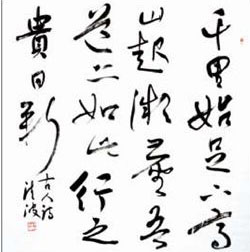 千里始足下高
山起微塵吾
道亦如此行之
貴日新
古人詩